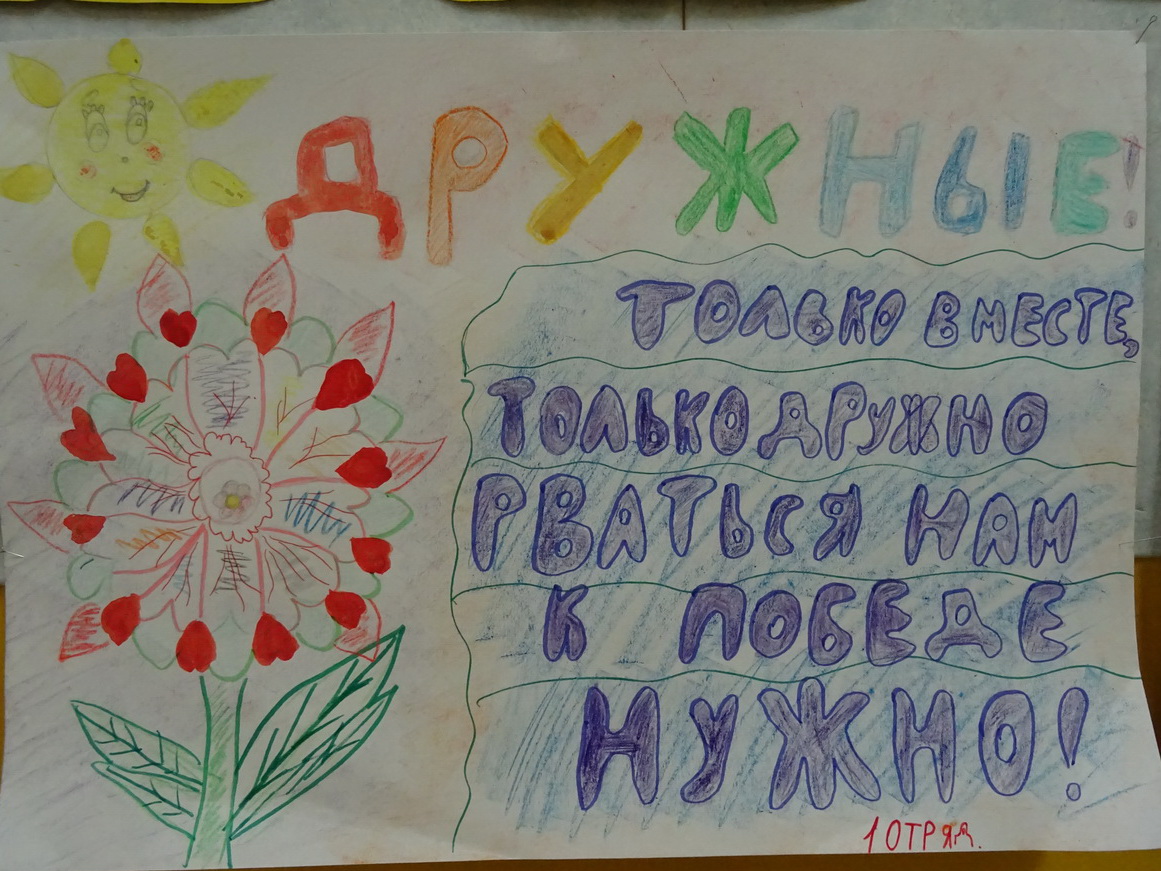 ДРУЖНЫЕ!
ТОЛЬКО ВМЕСТЕ,
ТОЛЬКО ДРУЖНО
РВАТЬСЯ НАМ
К ПОБЕДЕ
НУЖНО!
1 ОТРЯД.